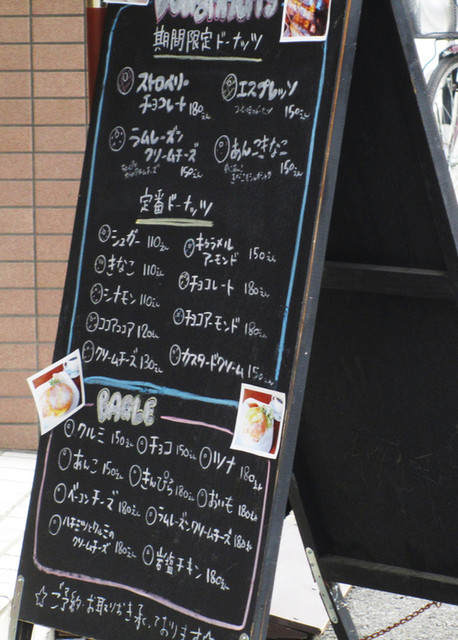 Doughnuts
期間限定ドーナッツ
ストロベリー
チョコレート 180えん
エスプレッソ
150えん
ラムレーズン
クリームチーズ 150えん
あんこきなこ
150えん
定番ドーナッツ
シュガー 110えん
キャラメル
アーモンド 150えん
きなこ 110えん
チョコレート 180えん
シナモン 110えん
チョコアーモンド 180えん
ココアココア 120えん
カスタードクリーム 150えん
クリームチーズ 130えん
BAGLE
クルミ 150えん チョコ 150えん ツナ 180えん
あんこ 150えん きんぴら 180えん おいも 180えん
ベーコンチーズ 180えん ラムレーズンクリームチーズ 180えん
ハチミツとクルミの
クリームチーズ 180えん 岩塩チキン 180えん
☆ご予約・お取りおき承っております☆